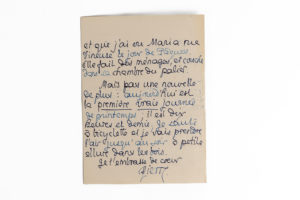 et que j'ai vu Maria rue
Vineuse le jour de Pâques.
Elle fait des ménages, et couche
dans la chambre du palier.
Mais pas une nouvelle
de plus : aujourd'hui est
la première vraie journée
de printemps, il est dix
heures et demie. Je saute
à bicyclette et je vais prendre
l'air jusqu'au soir à petite
allure dans les bois.
Je t'embrasse de coeur